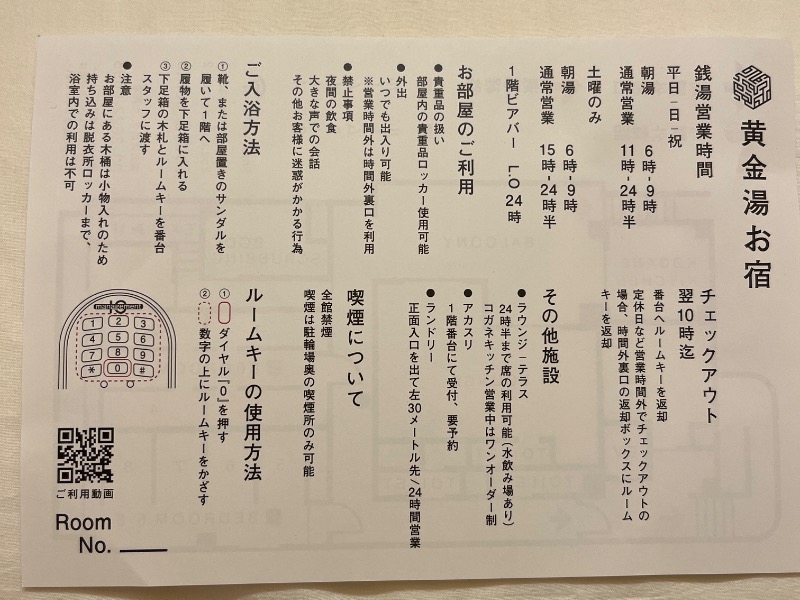 黄金湯お宿
銭湯営業時間
平日-日-祝
朝湯 6時-9時
通常営業 11時-24時半
土曜のみ
朝湯 6時-9時
通常営業 15時-24時半
1階ビアバー L.O 24時
お部屋のご利用
●貴重品の扱い
部屋内の貴重品ロッカー使用可能
●外出
いつでも出入り可能
※営業時間外は時間外裏口を利用
●禁止事項
夜間の飲食
大きな声での会話
その他お客様に迷惑がかかる行為
ご入浴方法
①靴、または部屋置きのサンダルを
履いて1階へ
②履物を下足箱に入れる
③下足箱の木札とルームキーを番台
スタッフに渡す
●注意
お部屋にある木桶は小物入れのため
持ち込みは脱衣所ロッカーまで、
浴室内での利用は不可
チェックアウト
翌10時迄
番台へルームキーを返却
定休日など営業時間外でチェックアウトの
場合、時間外裏口の返却ボックスにルーム
キーを返却
その他施設
●ラウンジ-テラス
24時半まで席の利用可能(水飲み場あり)
コガネキッチン営業中はワンオーダー制
●アカスリ
1階番台にて受付、要予約
●ランドリー
正面入口を出て左30メートル先/24時間営業
喫煙について
全館禁煙
喫煙は駐輪場奥の喫煙所のみ可能
ルームキーの使用方法
① ダイヤル『0』を押す
② 数字の上にルームキーをかざす
1 2 3
4 5 6
7 8 9
* 0 #
ご利用動画
Room
No.